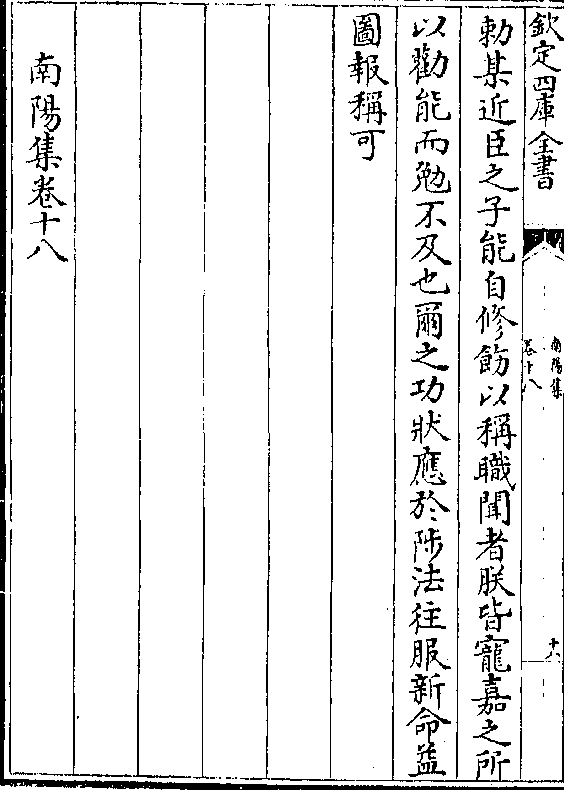 欽定四庫全書
南陽集
卷十八
十八
勅某近臣之子能自修飭以稱職聞者朕皆寵嘉之所
以勸能而勉不及也爾之功狀應於陟法往服新命益
圖報稱可
南陽集卷十八